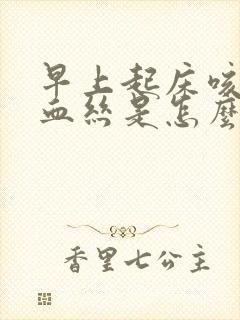 早上起床咳
血丝是怎麽
香里七公主